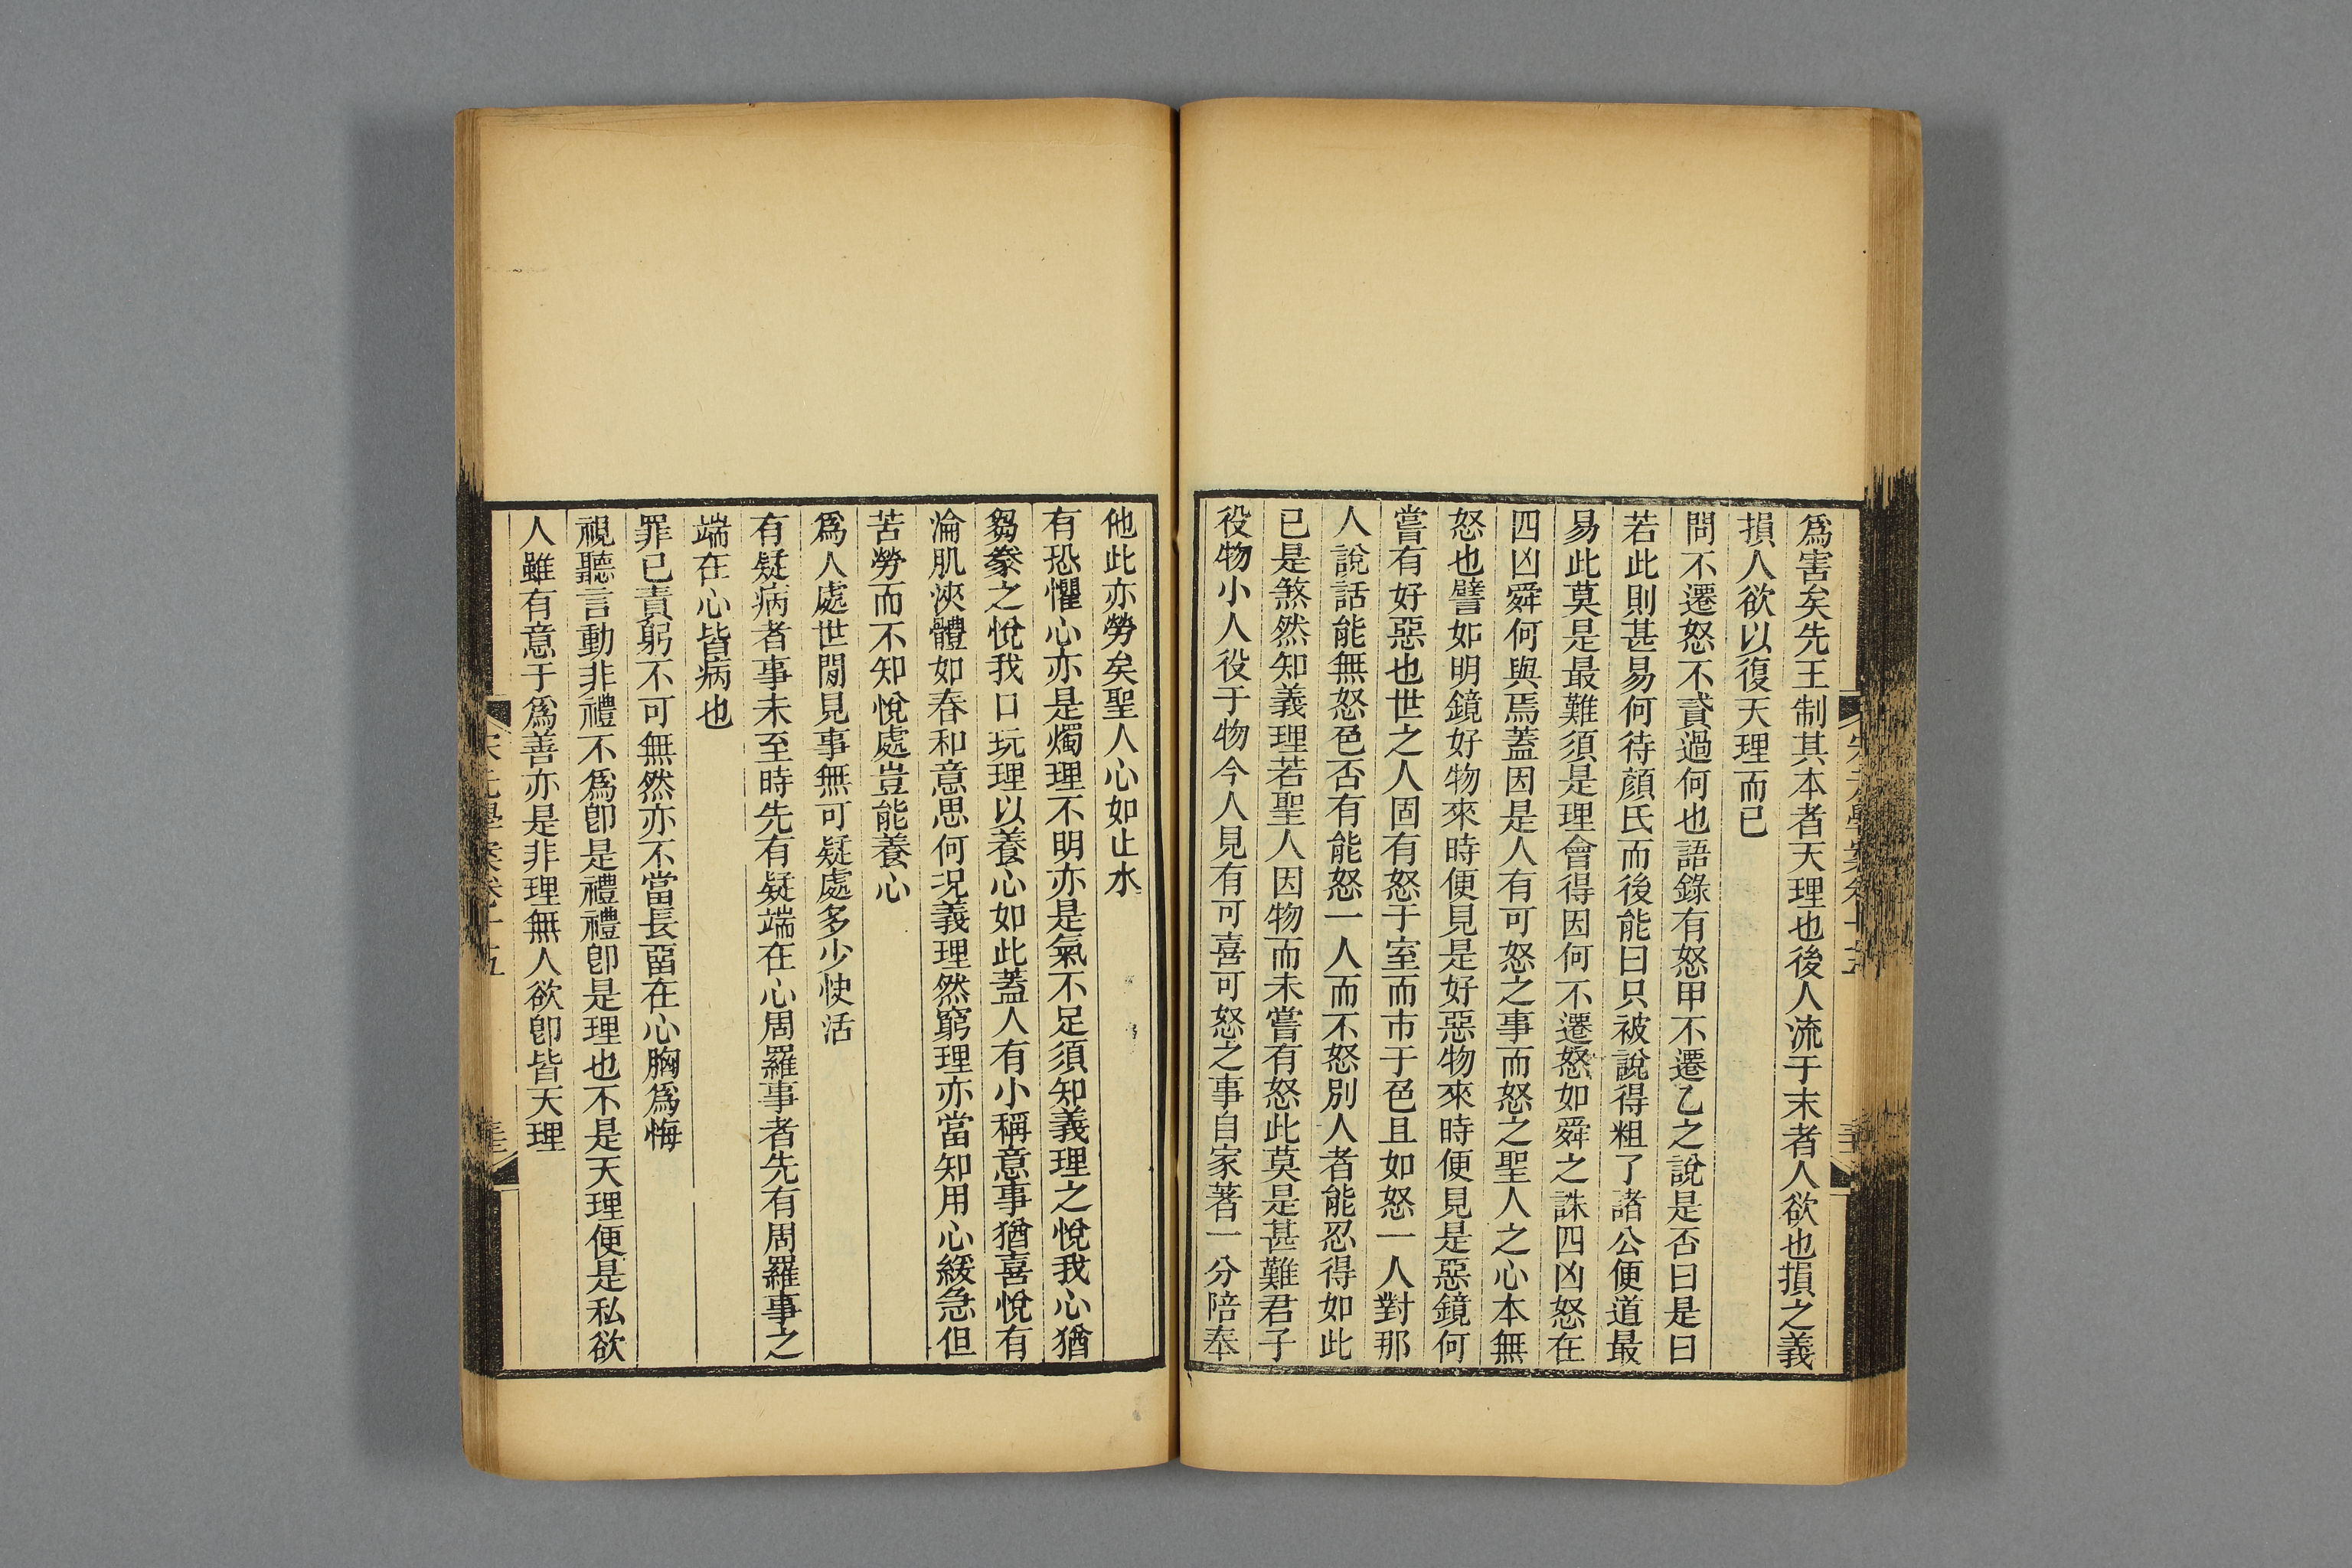 爲害矣先王制其本者天理也後人流于末者人欲也損之義
損人欲以復天理而已
問不遷怒不貳過何也語錄有怒甲不遷乙之說是否曰是曰
若此則甚易何待顏氏而後能曰只被說得粗了諸公便道最
易此莫是最難須是理會得因何不遷怒如舜之誅四凶怒在
四凶舜何與焉蓋因是人有可怒之事而怒之聖人之心本無
怒也譬如明鏡好物來時便見是好惡物來時便見是惡鏡何
嘗有好惡也世之人固有怒于室而市于色且如怒一人對那
人說話能無怒色否有能怒一人而不怒別人者能忍得如此
已是煞然知義理若聖人因物而未嘗有怒此莫是甚難君子
役物小人役于物今人見有可喜可怒之事自家著一分陪奉
他此亦勞矣聖人心如止水
有恐懼心亦是燭理不明亦是氣不足須知義理之悅我心猶
芻豢之悅我口玩理以養心如此蓋人有小稱意事猶喜悅有
淪肌浹體如春和意思何況義理然窮理亦當知用心緩急但
苦勞而不知悅處豈能養心
爲人處世閒見事無可疑處多少快活
有疑病者事未至時先有疑端在心周羅事者先有周羅事之
端在心皆病也
罪己責躬不可無然亦不當長畱在心胸爲悔
視聽言動非禮不爲卽是禮禮卽是理也不是天理便是私欲
人雖有意于爲善亦是非理無人欲卽皆天理
宋元學案卷十五